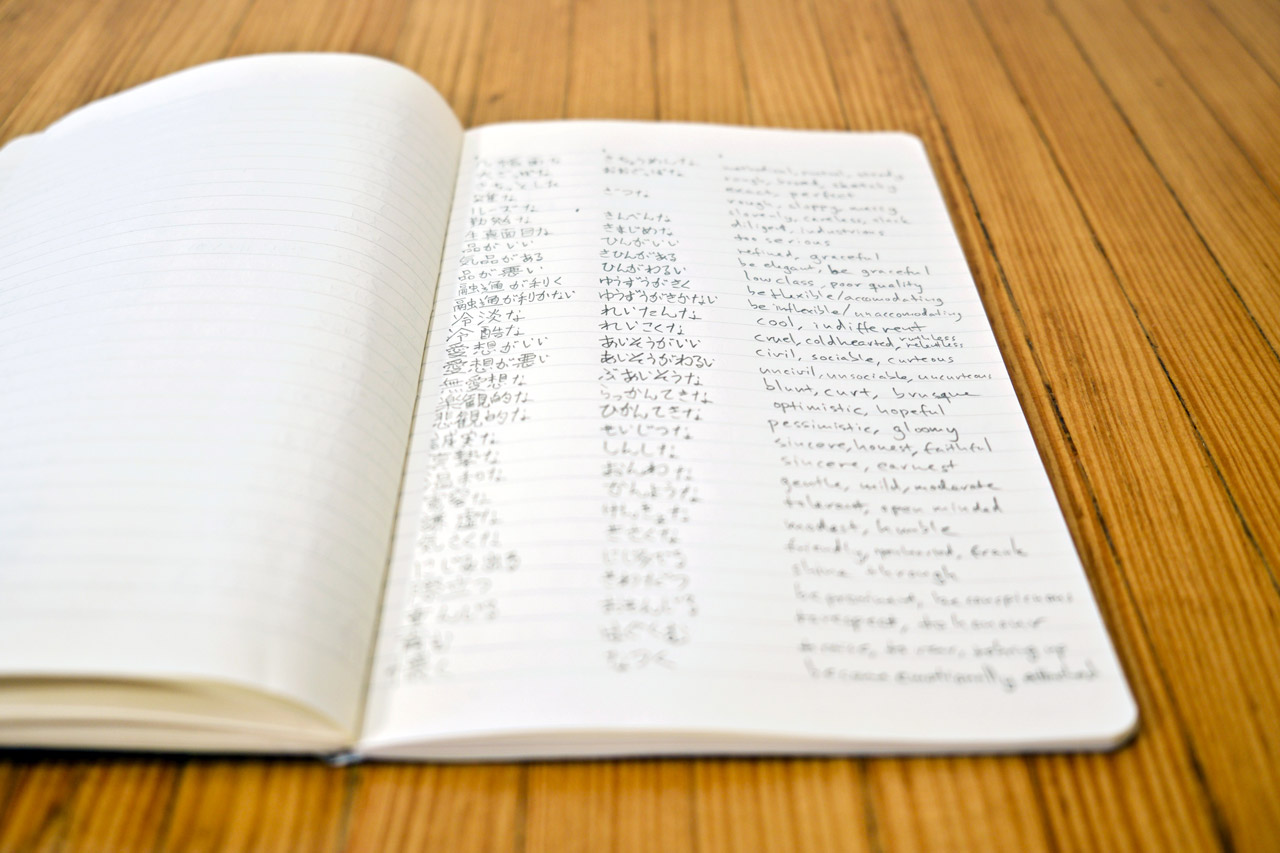 大ざっぱな おおざっぱな rough, broad, sketchy
exact, perfect
雑な ざつな rough, sloppy, messy
ルーズな slovenly, careless, slack
勤勉な きんべんな diligent, industrious
生真面目な きまじめな too serious
品がいい ひんがいい refined, graceful
気品がある きひんがある be elegant, be graceful
品が悪い ひんがわるい low class, poor quality
融通が利く ゆうずうがきく be flexible/accomodating
融通が利かない ゆうずうがきかない be inflexible/unaccomodating
冷淡な れいたんな cool, indifferent
冷酷な れいこくな cruel, coldhearted, ruthless, relentless
愛想がいい あいそうがいい civil, sociable, curteous
愛想が悪い あいそうがわるい uncivil, unsociable, uncurteous
無愛想な ぶあいそうな blunt, curt, brusque
楽観的な らっかんてきな optimistic, hopeful
悲観的な ひかんてきな pessimistic, gloomy
誠実な せいじつな sincere, honest, faithful
真摯な しんしな sincere, earnest
温和な おんわな gentle, mild, moderate
寛容な かんような tolerant, open minded
謙虚な けんきょな modest, humble
気さくな きさくな friendly, frank
にじみ出る shine through
be prominent, be conspicuous
to respect, to honour
はぐくむ
なつく become emotionally attached